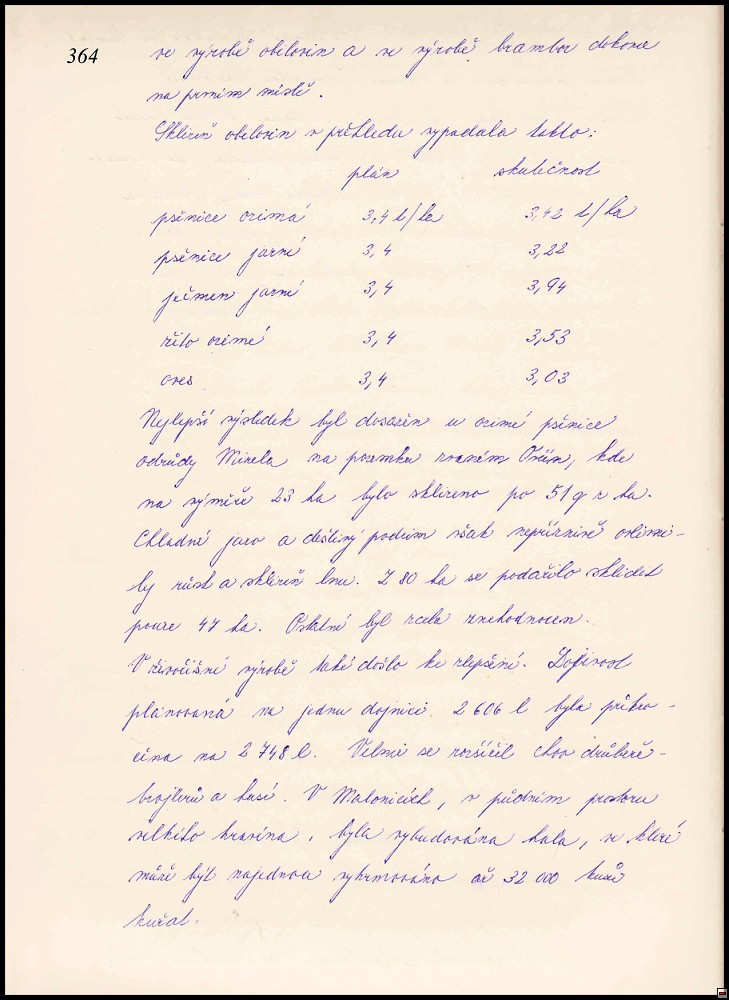 364
ve výrobě obilovin a ve výrobě brambor dokonce
na prvním místě.
Sklizeň obilovin v přehledu vypadala takto:
plán skutečnost
pšenice ozimá 3,4 t/ha 3,42 t/ha
pšenice jarní 3,4 3,22
ječmen jarní 3,4 3,94
žito ozimé 3,4 3,53
oves 3,4 3,03
Nejlepší výsledek byl dosažen u ozimé pšenice
odrůdy Mirela na pozemku zvaném, kde
na výměře 23 ha bylo sklizeno po 51 q z ha.
Chladné jaro a deštivý podzim však nepříznivě ovlivni-
ly růst a sklizeň lnu. Z 80 ha se podařilo sklidit
pouze 47 ha. Ostatní byl zcela znehodnocen.
V živočišné výrobě také došlo ke zlepšení. Dojivost
plánovaná na jednu dojnici 2 606 l byla překro-
čena na 2 748 l. Velmi se rozšířil chov drůbeže-
brojlerů a husí. V Malonicích, v půdním prostoru
velkého kravína, byla vybudována hala, ve které
může být najednou vykrmováno až 32 000 kusů
kuřat.